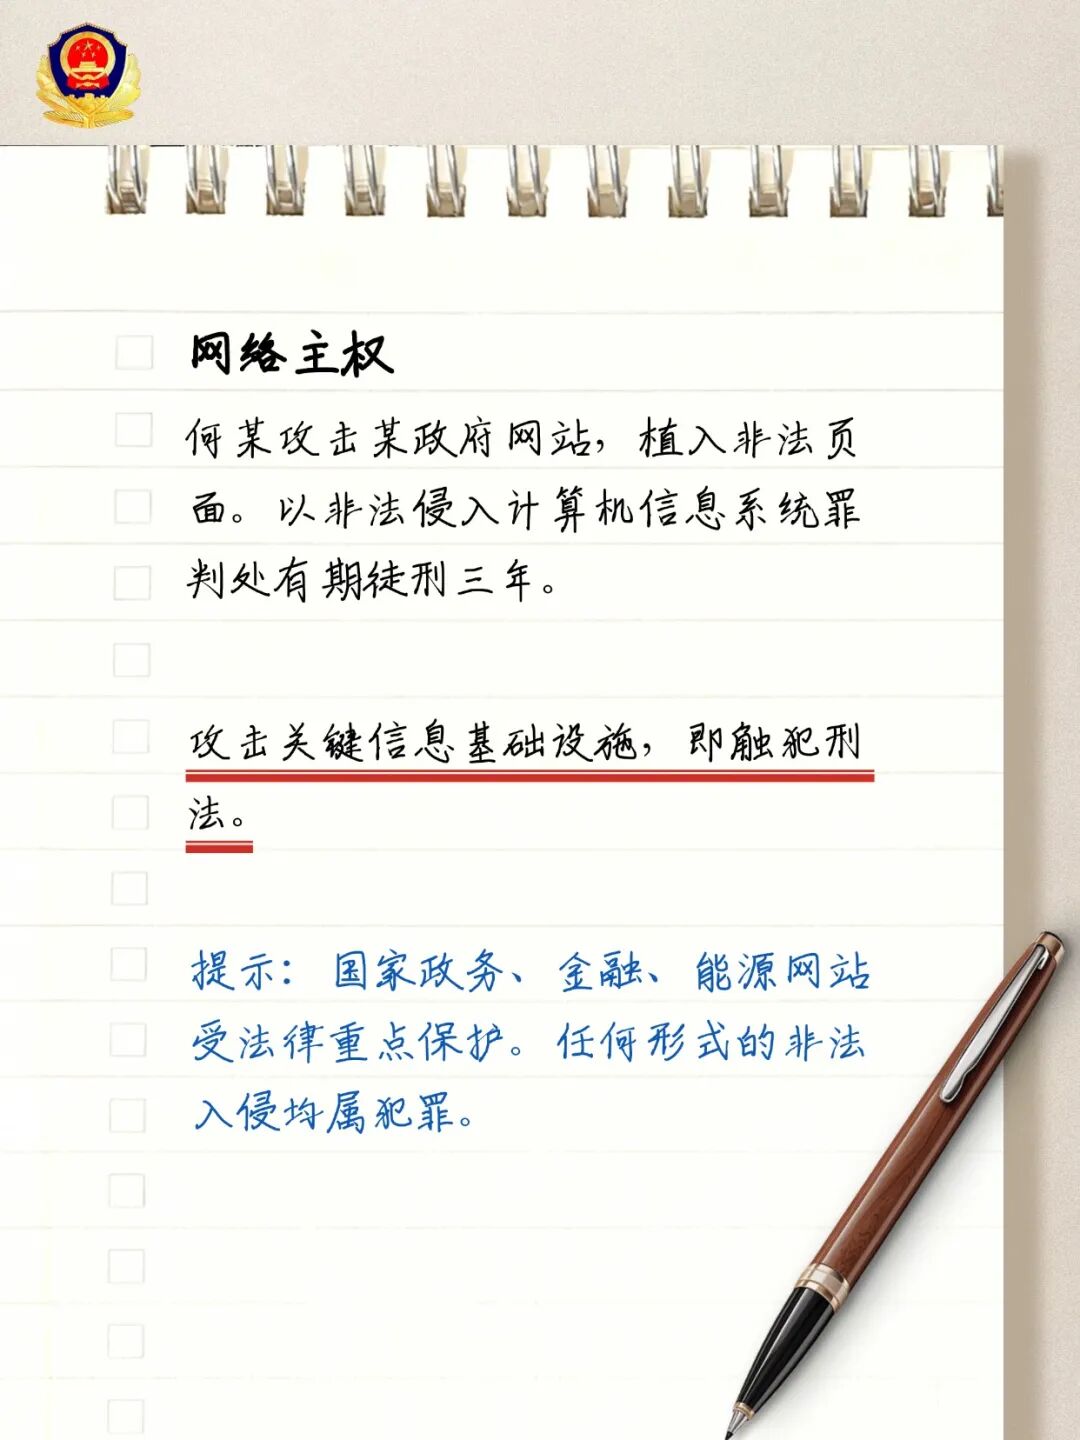 网络主权
何某攻击某政府网站，植入非法页
面。以非法侵入计算机信息系统罪
判处有期徒刑三年。
攻击关键信息基础设施，即触犯刑
法。
提示：国家政务、金融、能源网站
受法律重点保护。任何形式的非法
入侵均属犯罪。